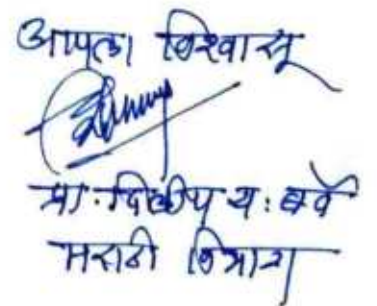 आपला विश्वासू
प्रा. दिलीप य. बर्वे
मराठी विभाग